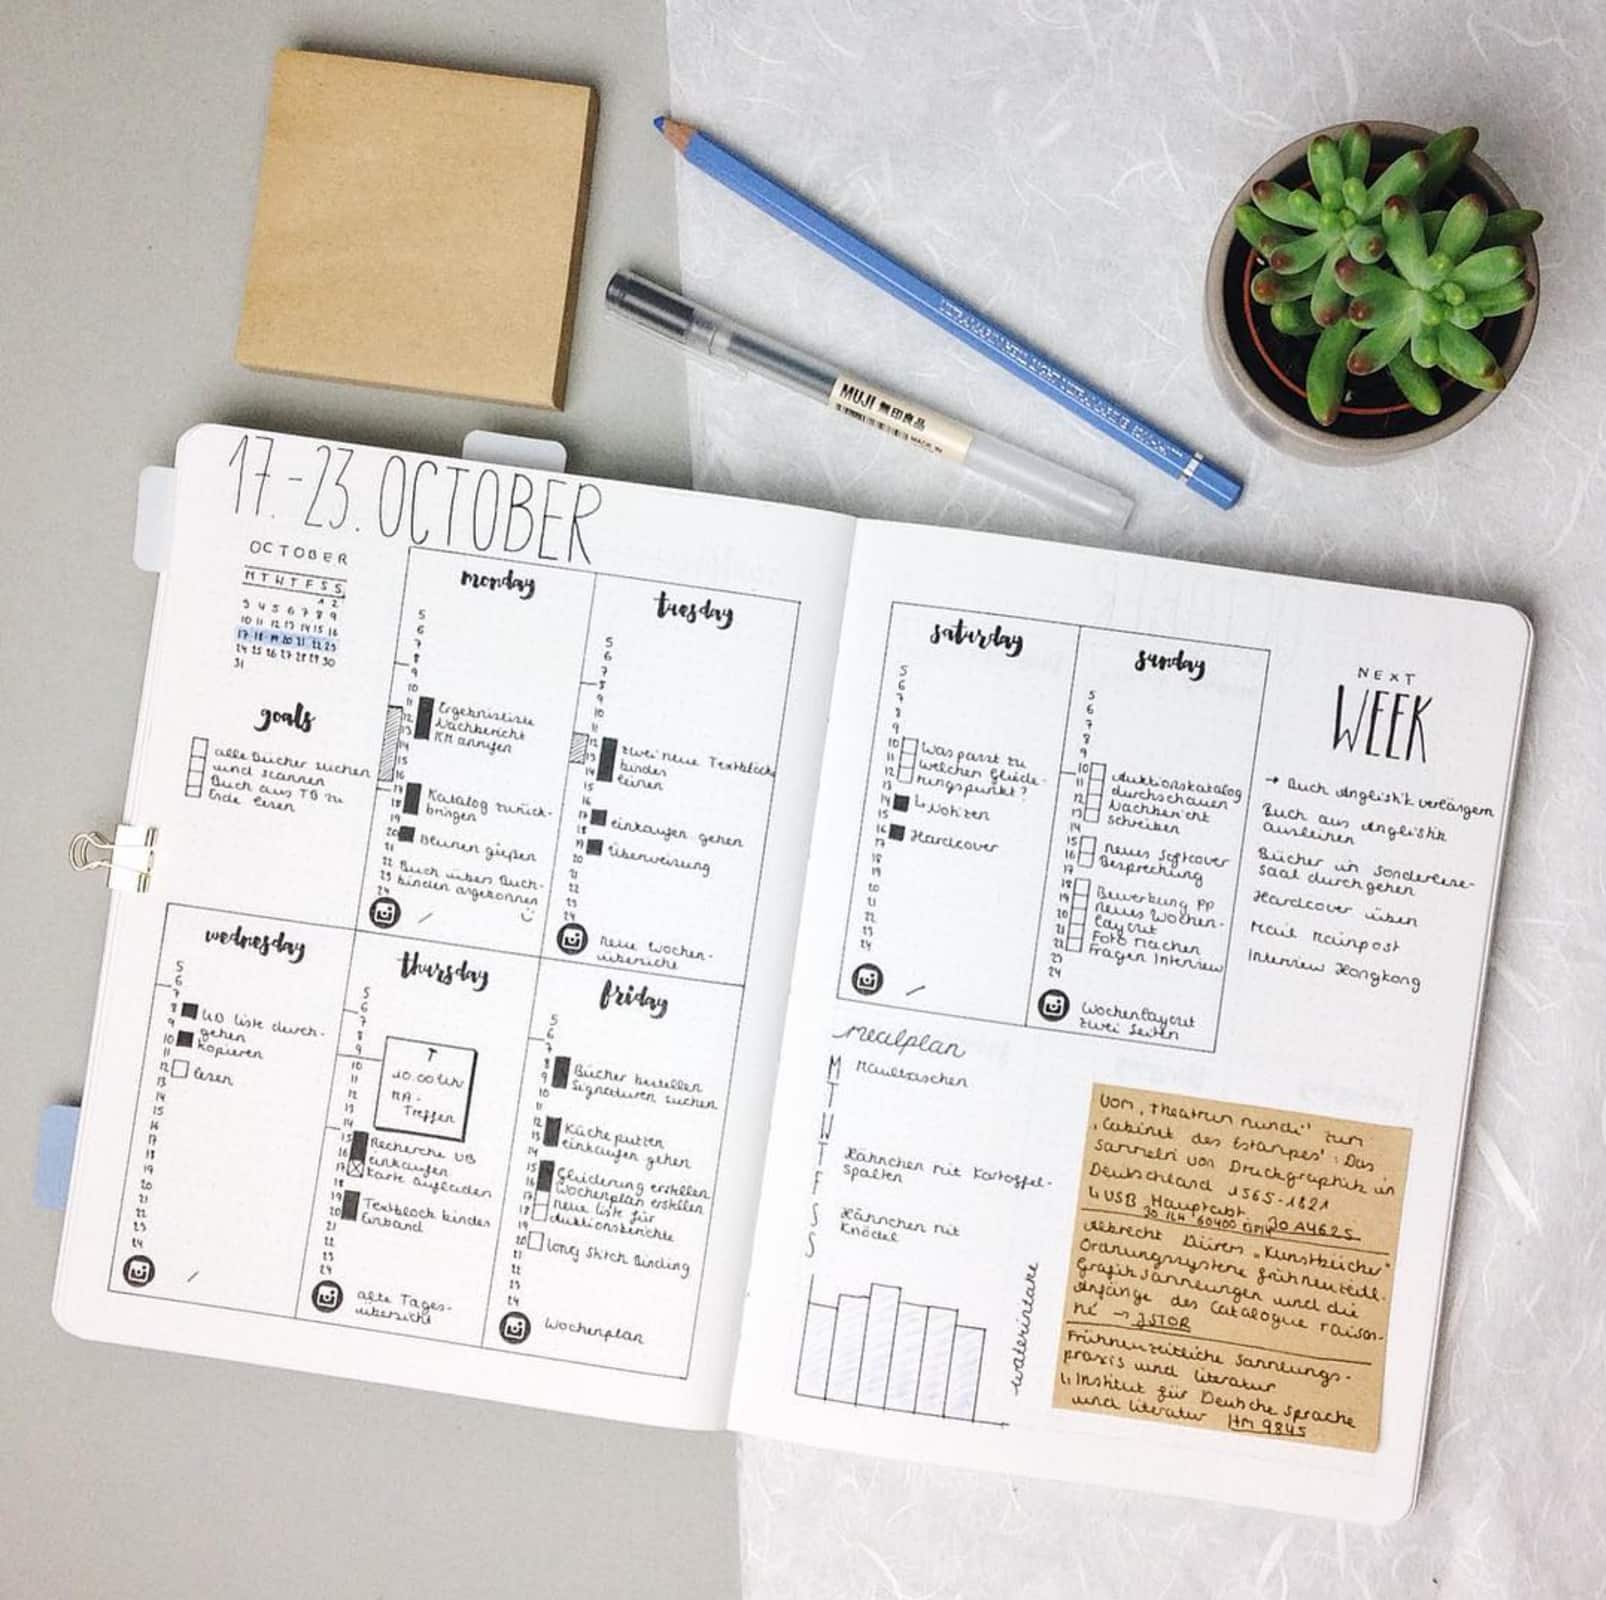 MUJI 無印良品
17.-23. OCTOBER
OCTOBER
M T W T F S S
1 2
3 4 5 6 7 8 9
10 11 12 13 14 15 16
17 18 19 20 21 22 23
24 25 26 27 28 29 30
31
goals
alle Bücher suchen
und scannen
Buch aus TB zu
Ende lesen
monday
5
6
7
8
9
10
11
12
13
14
15
16
17
18
19
20
21
22
23
24
Ergebnisliste
Nachbericht
KM anrufen
Katalog zurück-
bringen
Blumen gießen
Buch übers Buch-
binden angekommen
tuesday
5
6
7
8
9
10
11
12
13
14
15
16
17
18
19
20
21
22
23
24
zwei neue Textblöcke
binden
leimen
einkaufen gehen
Überweisung
neue Wochen-
übersicht
wednesday
5
6
7
8
9
10
11
12
13
14
15
16
17
18
19
20
21
22
23
24
UB Liste durch-
gehen
kopieren
lesen
thursday
5
6
7
8
9
10
11
12
13
14
15
16
17
18
19
20
21
22
23
24
T
10.00 Uhr
MA-
Treffen
Recherche UB
einkaufen
Karte aufladen
Textblock binden
Einband
alte Tages-
übersicht
friday
5
6
7
8
9
10
11
12
13
14
15
16
17
18
19
20
21
22
23
24
Bücher bestellen
Signaturen suchen
Küche putzen
einkaufen gehen
Gliederung erstellen
Wochenplan erstellen
neue Liste für
Auktionsberichte
Long Stitch Binding
Wochenplan
saturday
5
6
7
8
9
10
11
12
13
14
15
16
17
18
19
20
21
22
23
24
Was passt zu
welchem Gliede-
rungspunkt?
↳ Notizen
Hardcover
sunday
5
6
7
8
9
10
11
12
13
14
15
16
17
18
19
20
21
22
23
24
Auktionskatalog
durchschauen
Nachbericht
schreiben
neues Softcover
Besprechung
Bewerbung PP
neues Wochen-
layout
Foto machen
Fragen Interview
Wochenlayout
zwei Seiten
NEXT
WEEK
→ Buch Anglistik verlängern
Buch aus Anglistik
ausleihen
Bücher in Sonderlese-
saal durchgehen
Hardcover üben
Mail Mainpost
Interview Hongkong
mealplan
M Maultaschen
T
W
T Hähnchen mit Kartoffel-
spalten
F
S Hähnchen mit
Knödel
S
waterintake
Vom „Theatrum mundi" zum
„Cabinet des Estampes": Das
Sammeln von Druckgraphik in
Deutschland 1565-1821
↳ USB Hauptabt. 20 A4625
Albrecht Dürers „Kunstbücher"
Ordnungssysteme frühneuzeitl.
Grafiksammlungen und die
Anfänge des Catalogue raison-
né → JSTOR
Frühneuzeitliche Sammlungs-
praxis und Literatur
↳ Institut für Deutsche Sprache
und Literatur HM 9845